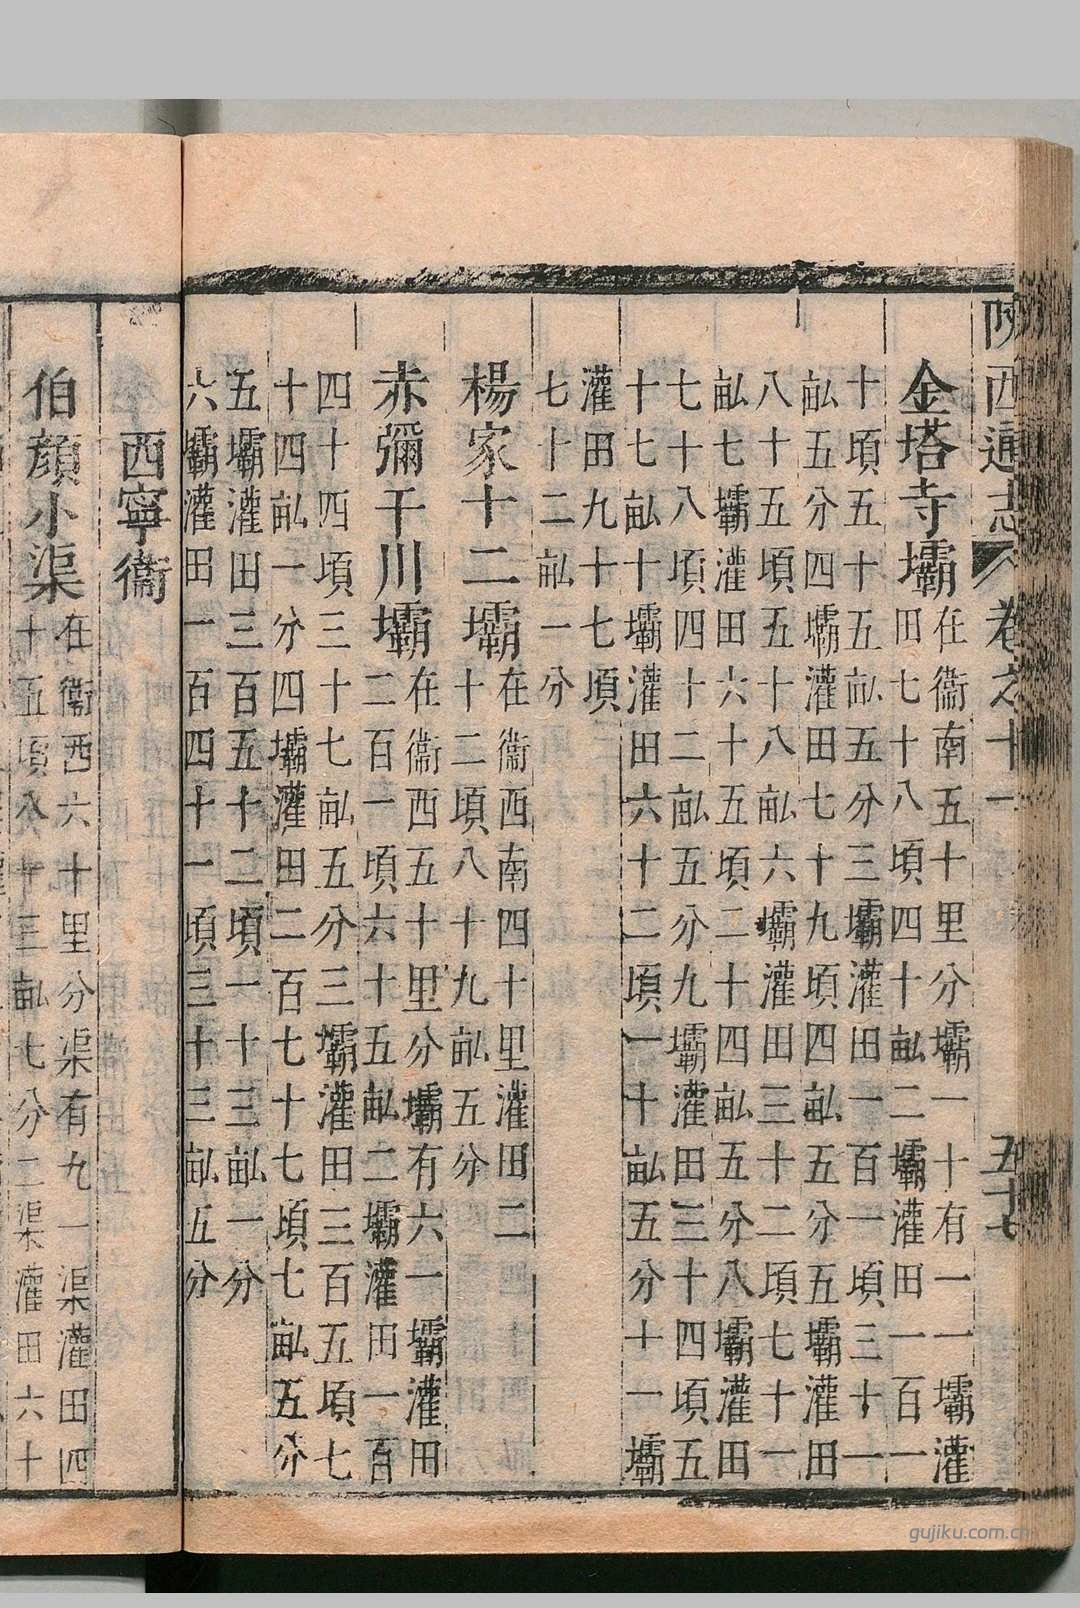 陝西通志 卷之十一 五十七
金塔寺壩
在衞南五十里分壩一十有一一壩灌
田七十八頃四十畒二壩灌田一百一
十頃五十五畒五分三壩灌田一百一頃三十一
畒五分四壩灌田七十九頃四畒五分五壩灌田
八十五頃五十八畒六壩灌田三十二頃七十一
畒七壩灌田六十五頃二十四畒五分八壩灌田
七十八頃四十二畒五分九壩灌田三十四頃五
十七畒十壩灌田六十二頃一十畒五分十一壩
灌田九十七頃
七十二畒一分
楊家十二壩
在衞西南四十里灌田二
十二頃八十九畒五分
赤彌干川壩
在衞西五十里分壩有六一壩灌田
二百一頃六十五畒二壩灌田一百
四十四頃三十七畒五分三壩灌田三百五頃七
十四畒一分四壩灌田二百七十七頃七畒五分
五壩灌田三百五十二頃一十三畒一分
六壩灌田一百四十一頃三十三畒五分
西寧衞
伯顏小渠
在衞西六十里分渠有九一渠灌田四
十五頃八十三畒七分二渠灌田六十
gujiku.com.cn